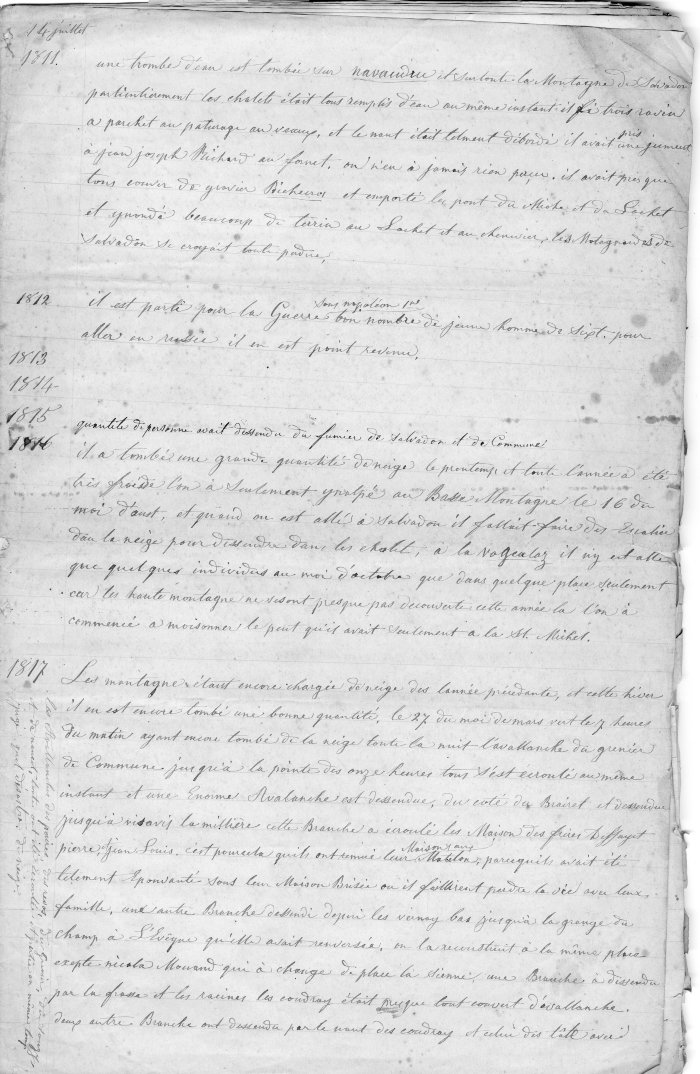 14 juillet
1811.
une trombe d'eau est tombée sur navaudru et surtoute la Montagne de Salvadon
particulierement les chalets était tous remplis d'eau au même instant il fi trois ravin
a parchet au paturage au veaux, et le nant était telment débordé il avait pris une jument
à jean joseph Richard au fornet, on n'en à jamais rien paçer. il avait presque
tous couver de gravier Bicheeros et emporté les pont du Miche et du Lachet
et ynondé beaucoup de terrin au Lachet et au chenevier, les Motagnards de
salvadon se croyait toute perdre,
1812 il est parti pour la Guerre sous napoléon 1er bon nombre de jeune homme de Sixt. pour
aller en russie il en est point revenu.
1813
1814
1815 quantité de personne avait dessendu du fumier de salvadon et de Commune
1816 il a tombé une grande quantité de neige le printemps et toute l'année a été
très froide l'on à seulement ynalpé au Basse Montagne le 16 du
moi d'aust, et quand on est allé à salvadon il fallait faire des Escalier
dan la neige pour dessendre dans les chalet, à la vogealaz il ny est allé
que quelques individus au moi d'octobre que dans quelque place seulement
car les haute montagne ne se sont presque pas decouverte cette année la l'on à
commencé a moisonner le peut qu'il avait seulement a la St. Michel.
1817 Les montagne étais encore chargée de neige des lannée précédante, et cette hiver
il en est encore tombé une bonne quantité, le 27 du moi de mars vert le 7 heures
du matin ayant encore tombé de la neige toute la nuit l'avallanche du grenier
de Commune jusqu'à la pointe des onze heures tous s'est écroulé au même
instant et une Enorme Avalanche est dessendue, du coté du Brairet et dessendue
jusqu'à visavis la millière cette Branche a écroulé les Maison des frères Deffayet
pierre, Jean Louis, cest pourcela quils ont remué leur Maison aux Mabelon, parcequils avait été
telement Epouvanté sous leur Maison Brisée ou il faillirent perdre la vie avec leux
famille, une autre Branche dessendi depuir les vernay bas jusqu'à la grange du
champ à L'Evêque qu'elle avait renversée, on la reconstruit à la même place
exepté nicola Mouand qui à change de place la sienne, une Branche à dessendu
par la frasse et les racines les coudray était presque tout couvert d'avallanche.
deux autre Branche ont dessendu par le nant des coudray et celui des tâte avec